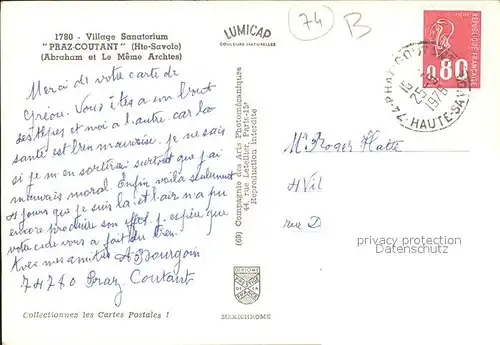 1780 - Village Sanatorium
"PRAZ-COUTANT" (Hte-Savoie)
(Abraham et Le Même Archtes)
LUMICAP
COULEURS NATURELLES
74
B
RÉPUBLIQUE FRANÇAISE
0,80
74 PRAZ-COUTANT
25
1976
HAUTE-SAVOIE
Merci de votre carte de
Vous êtes a un bout
et moi a l'autre. car la
santé est bien mauvaise. je ne sais
si je m'en sortirai surtout que j'ai
mauvais moral. Enfin voilà seulement
jours que je suis là et l'air n'a pu
encore produire son effet. j'espère que
votre cure vous a fait du bien.
Avec mes amitiés A Bourgoin
74740 Praz Coutant
(69) Compagnie des Arts Photomécaniques
44, rue Letellier, Paris-15e
Reproduction Interdite
Mr Roger Hatte
4 Vil
rue D
privacy protection
Datenschutz
Collectionnez les Cartes Postales !
MEXICHROME